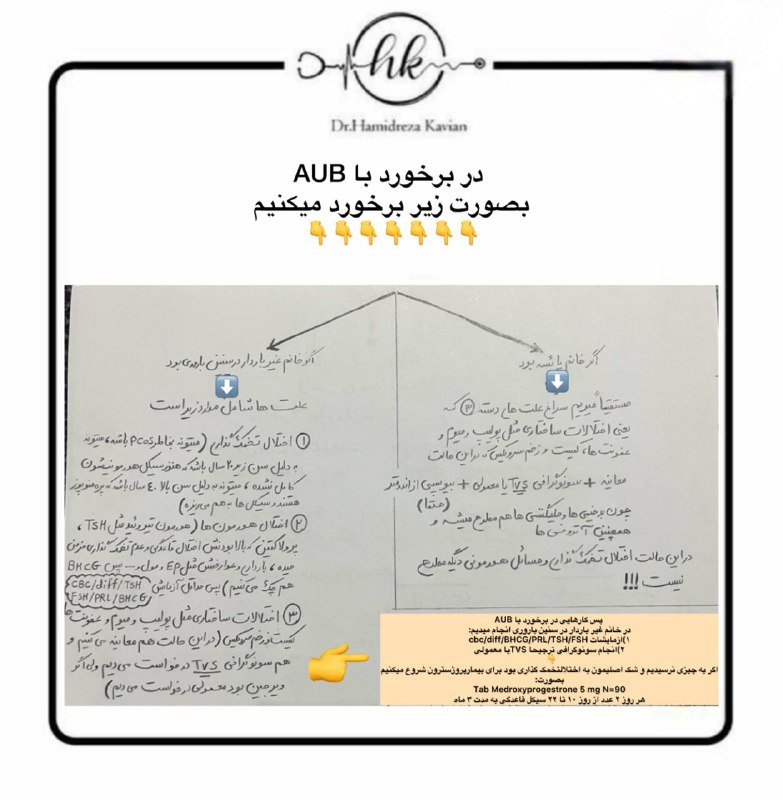 hk
Dr.Hamidreza Kavian
در برخورد با AUB
بصورت زیر برخورد میکنیم
👇👇👇👇👇👇👇
اگر خانم یائسه بود
مستقیماً میریم سراغ علت های دسته ③ که
یعنی اختلالات ساختاری مثل پولیپ و میوم و
عفونت ها، کیست و زخم سرویکس که در این حالت
معاینه + سونوگرافی TVS یا معمولی + بیوپسی از اندومتر
(حتما)
چون بدخیمی ها و مالیگننسی ها هم مطرح میشه و
همچنین آتروفی ها
در این حالت اختلال تخمک گذاری و مسائل هورمونی دیگه مطرح
نیست !!!
اگر خانم غیر باردار در سنین باروری بود
علت ها شامل موارد زیر است
① اختلال تخمک گذاری (میتونه بخاطر PCOS باشه، میتونه
به دلیل سن زیر ۲۰ سال باشه که هنوز سیکل هورمونیشون
کامل نشده، میتونه به دلیل سن بالا ۴۰ سال باشه که پره منوپوز
هستند و سیکل ها به هم میریزه)
② اختلال هورمون ها (هورمون تیروئید مثل TSH،
پرولاکتین که بالا بودنش اختلال قاعدگی و عدم تخمک گذاری مزمن
میده، بارداری و عوارضش مثل EP و مول و --- پس BHCG
هم چک می کنیم) پس حداقل آزمایش CBC/diff/TSH
FSH/PRL/BHCG
③ اختلالات ساختاری مثل پولیپ و میوم و عفونت ها
کیست و زخم سرویکس (در این حالت هم معاینه می کنیم و
هم سونوگرافی TVS درخواست می دیم ولی اگر
ویرجین بود معمولی درخواست می دیم)
پس کارهایی در برخورد با AUB
در خانم غیر باردار در سنین باروری انجام میدیم:
۱)ازمایشات cbc/diff/BHCG/PRL/TSH/FSH
۲)انجام سونوگرافی ترجیحا TVSیا معمولی
اگر به چیزی نرسیدیم و شک اصلیمون به اختلالتخمک گذاری بود برای بیمارپروژسترون شروع میکنیم
بصورت:
Tab Medroxyprogestrone 5 mg N=90
هر روز ۲ عدد از روز ۱۰ تا ۲۲ سیکل قاعدگی به مدت ۳ ماه